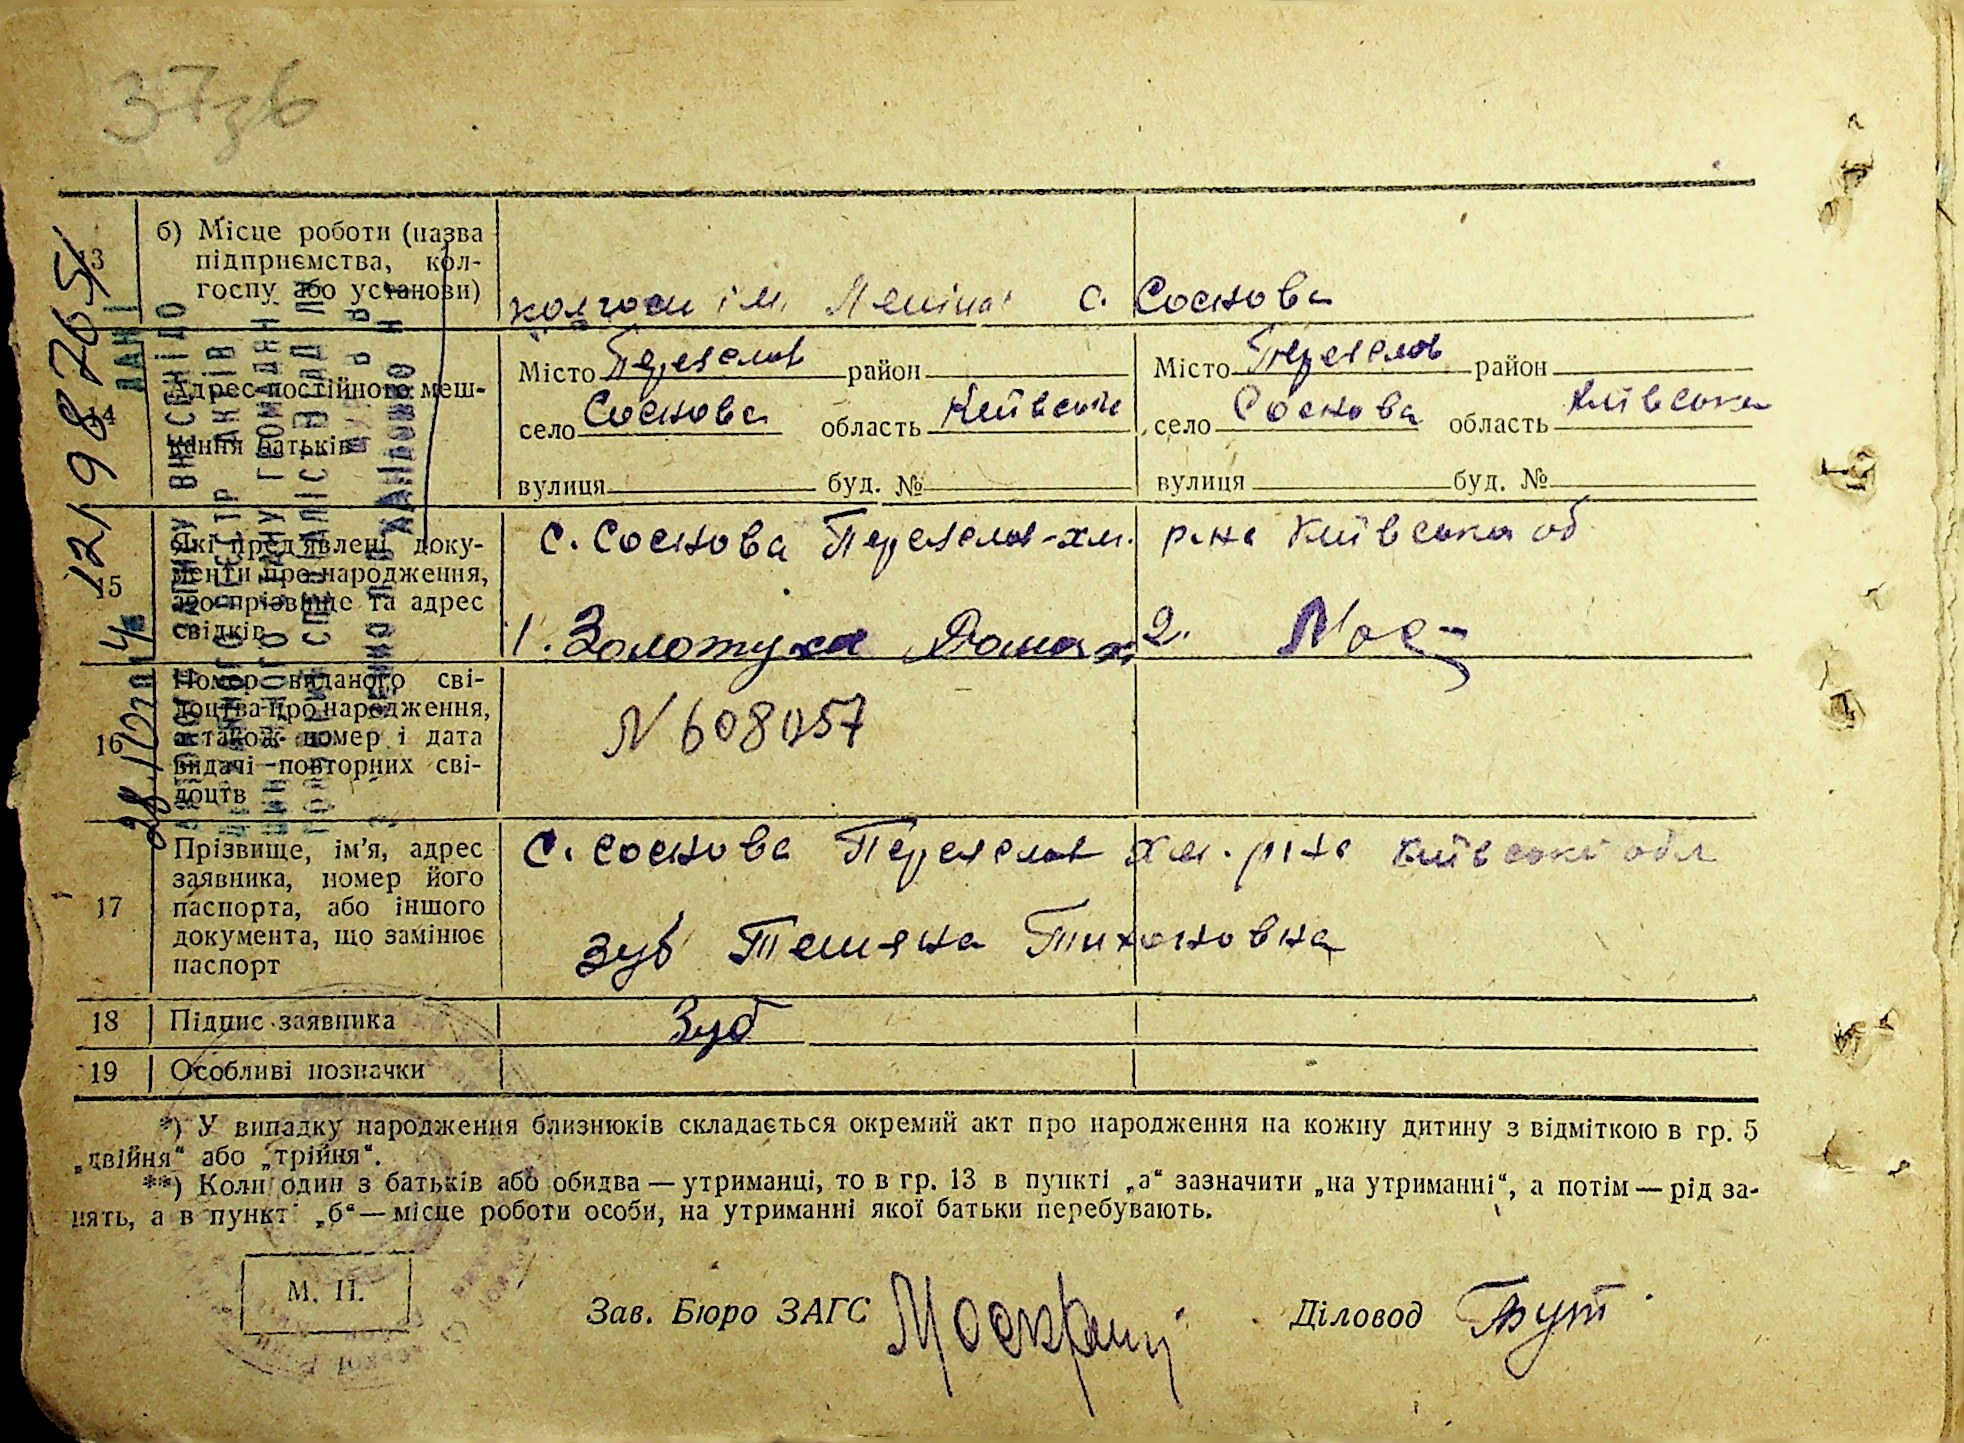 37зб
13 б) Місце роботи (назва
підприємства, кол-
госпу або установи)
колгосп ім. Леніна с. Соснова
14 Адрес постійного меш-
кання батьків
Місто Переяслав район Місто Переяслав район
село Соснова область Київськ село Соснова область Київська
вулиця буд. № вулиця буд. №
15 Які пред'явлені доку-
менти про народження,
або прізвище та адрес
свідків
с. Соснова Переяслав-хм. р-на Київська об
1. Золотуха 2.
16 Номер виданого сві-
доцтва про народження,
а також номер і дата
видачі повторних сві-
доцтв
N 608057
17 Прізвище, ім'я, адрес
заявника, номер його
паспорта, або іншого
документа, що замінює
паспорт
с. Соснова Переяслав хм. р-на Київської обл
Зуб Тетяна Тихоновна
18 Підпис заявника Зуб
19 Особливі позначки
*) У випадку народження близнюків складається окремий акт про народження на кожну дитину з відміткою в гр. 5
„двійня“ або „трійня“.
**) Коли один з батьків або обидва — утриманці, то в гр. 13 в пункті „а“ зазначити „на утриманні“, а потім — рід за-
нять, а в пункті „б“ — місце роботи особи, на утриманні якої батьки перебувають.
М. П.
Зав. Бюро ЗАГС Діловод